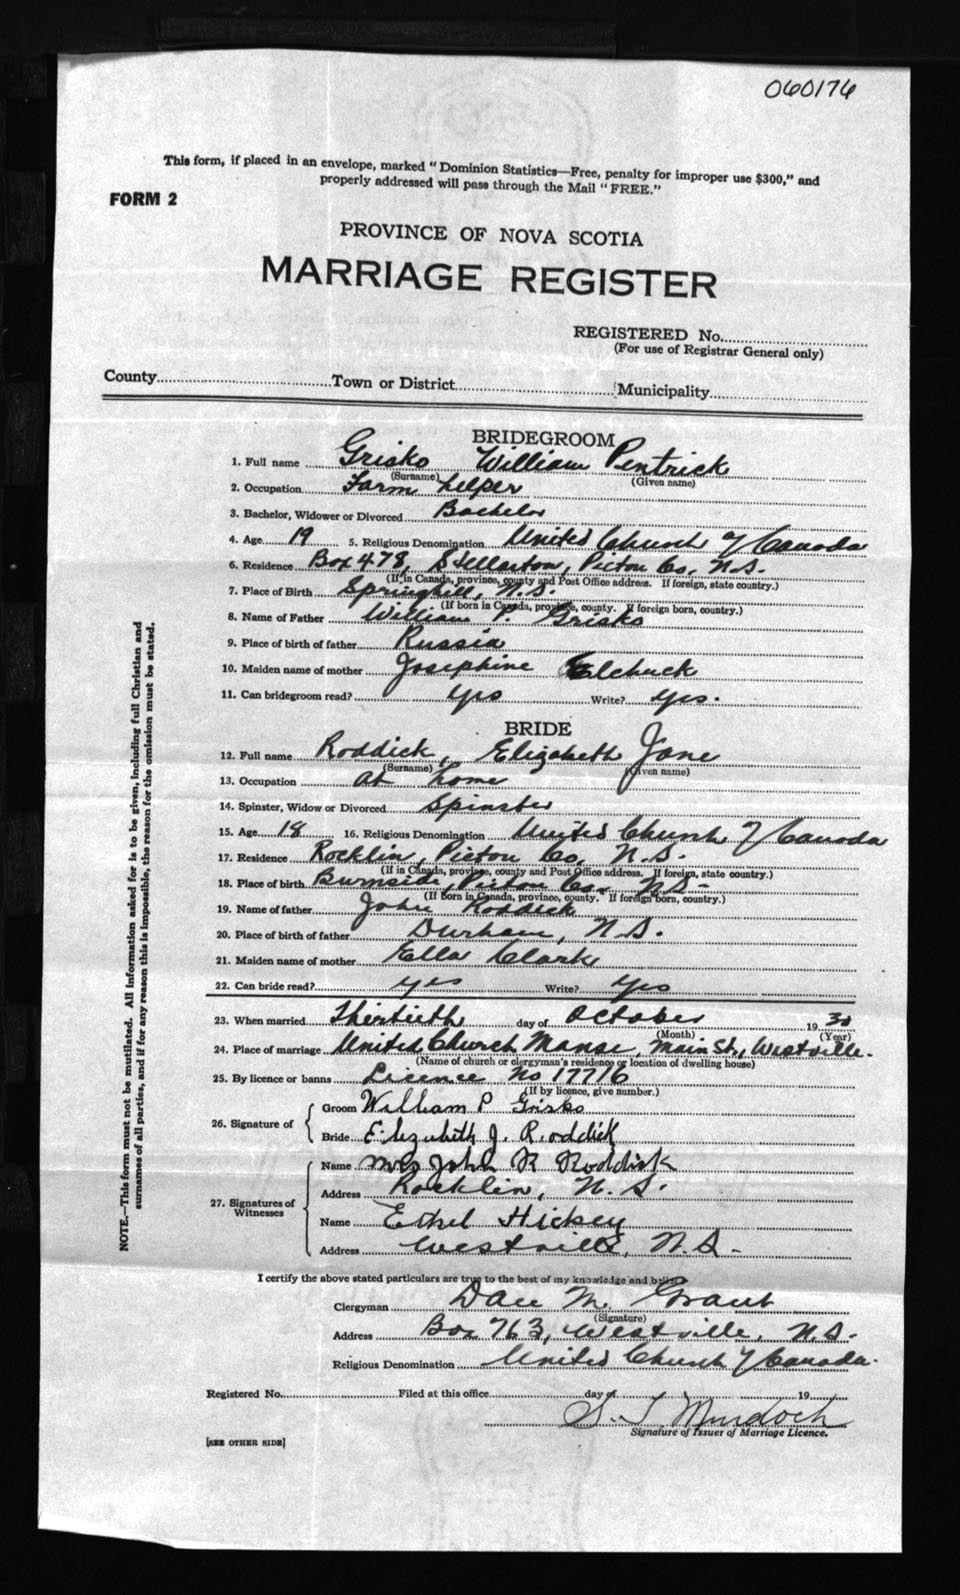 060176
This form, if placed in an envelope, marked "Dominion Statistics—Free, penalty for improper use $300," and
properly addressed will pass through the Mail "FREE."
FORM 2
PROVINCE OF NOVA SCOTIA
MARRIAGE REGISTER
REGISTERED No.
(For use of Registrar General only)
County Town or District Municipality
BRIDEGROOM
1. Full name Grisko William Pentrick
(Surname) (Given name)
2. Occupation Farm helper
3. Bachelor, Widower or Divorced Bachelor
4. Age 19 5. Religious Denomination United Church of Canada
6. Residence Box 478, Stellarton, Pictou Co, N.S.
(If in Canada, province, county and Post Office address. If foreign, state country.)
7. Place of Birth Springhill, N.S.
(If born in Canada, province, county. If foreign born, country.)
8. Name of Father William P. Grisko
9. Place of birth of father Russia
10. Maiden name of mother Josephine
11. Can bridegroom read? yes Write? yes.
BRIDE
12. Full name Roddick, Elizabeth Jane
(Surname) (Given name)
13. Occupation at home
14. Spinster, Widow or Divorced Spinster
15. Age 18 16. Religious Denomination United Church of Canada
17. Residence Rocklin, Pictou Co, N.S.
(If in Canada, province, county and Post Office address. If foreign, state country.)
18. Place of birth Burnside, Pictou Co. N.S-
(If born in Canada, province, county. If foreign born, country.)
19. Name of father John Roddick
20. Place of birth of father Durham, N.S.
21. Maiden name of mother Ella Clark
22. Can bride read? yes Write? yes
23. When married Thirtieth day of October 19 30
(Month) (Year)
24. Place of marriage United Church Manse, Main St., Westville.
(Name of church or clergyman's residence or location of dwelling house)
25. By licence or banns Licence No 17716
(If by licence, give number.)
26. Signature of
Groom William P Grisko
Bride Elizabeth J. Roddick
27. Signatures of Witnesses
Name Mrs John R Roddick
Address Rocklin, N.S.
Name Ethel Hickey
Address Westville, N.S-
I certify the above stated particulars are true to the best of my knowledge and belief.
Clergyman Dan M. Grant
(Signature)
Address Box 763, Westville, N.S-
Religious Denomination United Church of Canada.
Registered No. Filed at this office day of 19
S. T Murdoch
Signature of Issuer of Marriage Licence.
[SEE OTHER SIDE]
NOTE.—This form must not be mutilated. All information asked for is to be given, including full Christian and
surnames of all parties, and if for any reason this is impossible, the reason for the omission must be stated.